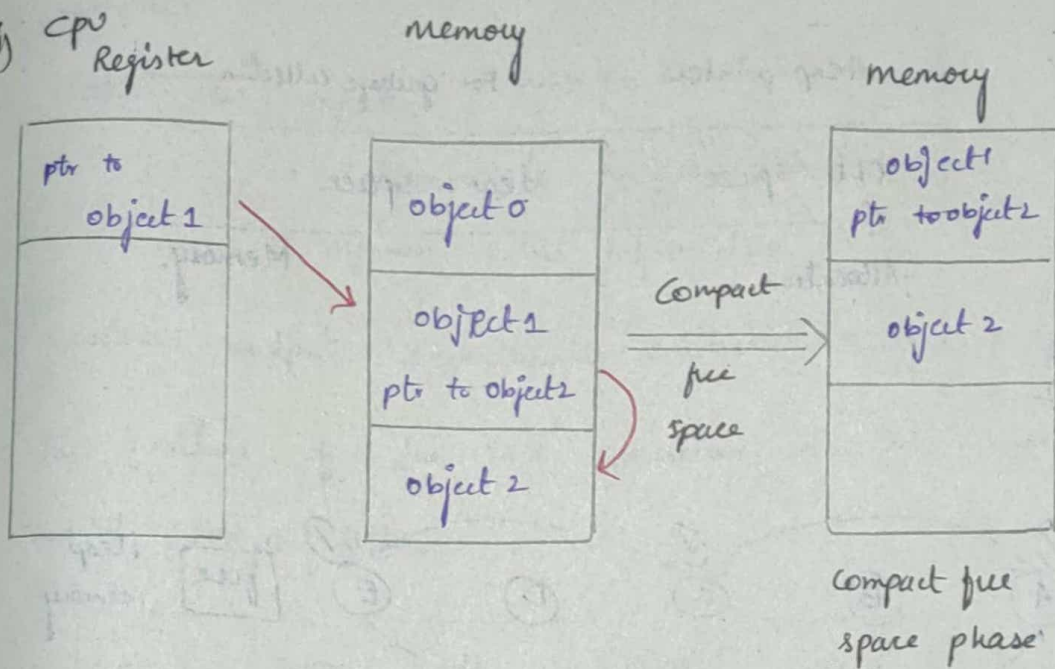 i) CPU
Register
memory
memory
ptr to
object 1
object 0
object 1
ptr to object2
object 2
Compact
free
space
object1
ptr to object2
object 2
compact free
space phase